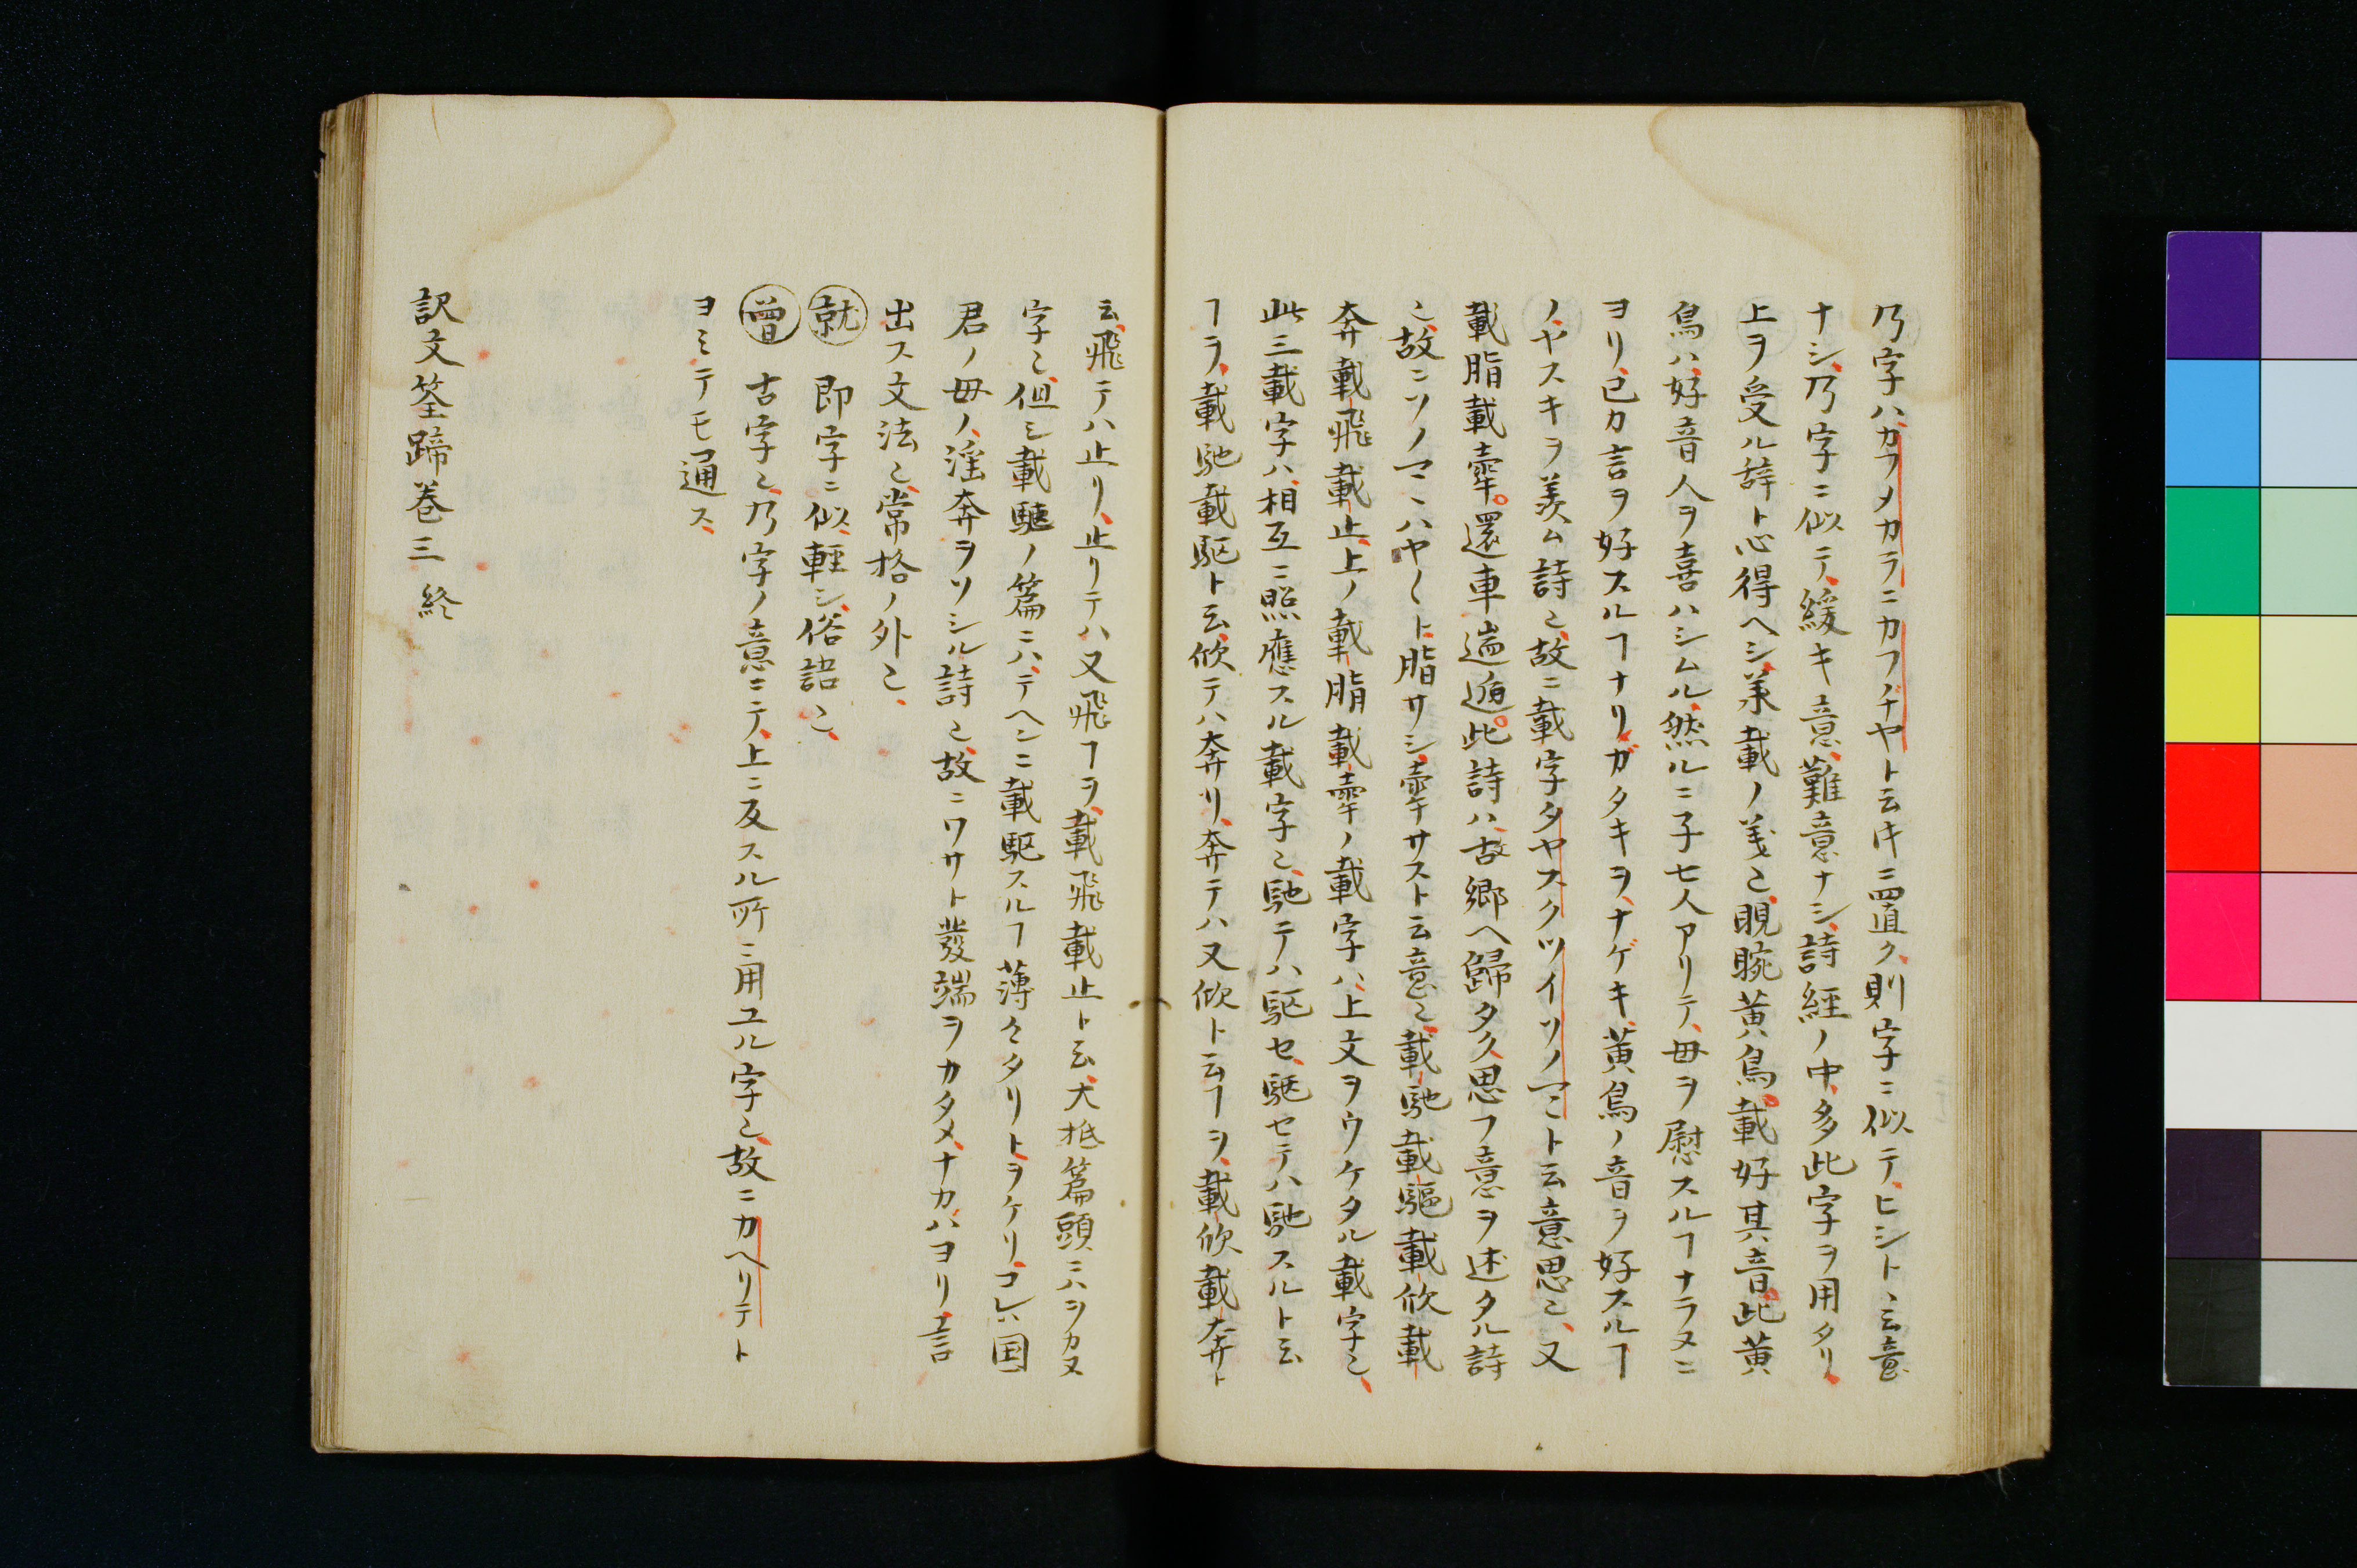 乃字ハカラメカラニカフヂヤト云キニ置ク、則字ニ似テ、ヒシト、云意
ナシ、乃字ニ似テ、緩キ意、難意ナシ、詩經ノ中、多此字ヲ用タリ、
上ヲ受ル辞ト心得ヘシ、兼載ノ義也、睍睆黄鳥。載好其音。此黄
鳥ハ、好音人ヲ喜ハシムル、然ルニ子七人アリテ、毋ヲ慰スルヿナラヌニ
ヨリ、己カ言ヲ好スルヿナリガタキヲ、ナゲキ、黄鳥ノ音ヲ好スルヿ
ノ、ヤスキヲ羨ム詩也、故ニ載字タヤスクツイソノマヽト云意思也、又
載脂載舝。還車遄邁。此詩ハ、古郷ヘ歸タク思フ意ヲ述タル詩
也、故ニソノマヽハヤ〱ト脂サシ、舝サスト云意也、載馳載驅載欣載
奔載飛載止、上ノ載脂載舝ノ載字ハ、上文ヲウケタル載字也、
此三載字ハ、相互ニ照應スル載字也、馳テハ駆セ、駆セテハ馳スルト云
ヿヲ、載馳載駆ト云、欣テハ奔リ、奔テハ又欣ト云ヿヲ、載欣載奔ト
云、飛テハ止リ、止リテハ又飛ヿヲ、載飛載止ト云、大抵篇頭ニハヲカヌ
字也、但シ載驅ノ篇ニハ、テヘンニ載駆スルヿ薄々タリトヲケリ、コレハ国
君ノ毋ノ、淫奔ヲソシル詩也、故ニワサト發端ヲカタメ、ナカハヨリ、言
出ス文法也、常格ノ外也、
就 即字ニ似、輕シ、俗語也、
曽 古字也、乃字ノ意ニテ、上ニ反スル所ニ用ユル字也、故ニカヘリテト
ヨミテモ通ス、
訳文筌蹄巻三終